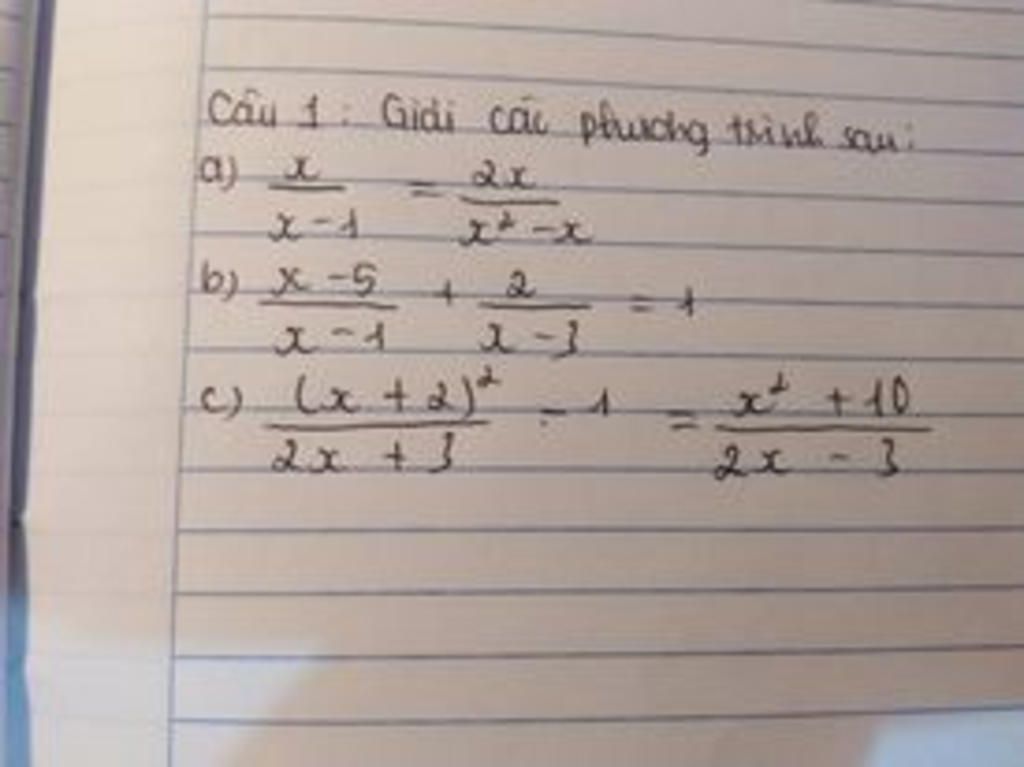 Câu 1 : Giải các phương trình sau:
a) x/(x-1) = 2x/(x² - x)
b) (x-5)/(x-1) + 2/(x-3) = 1
c) (x+2)²/(2x+3) - 1 = (x²+10)/(2x-3)